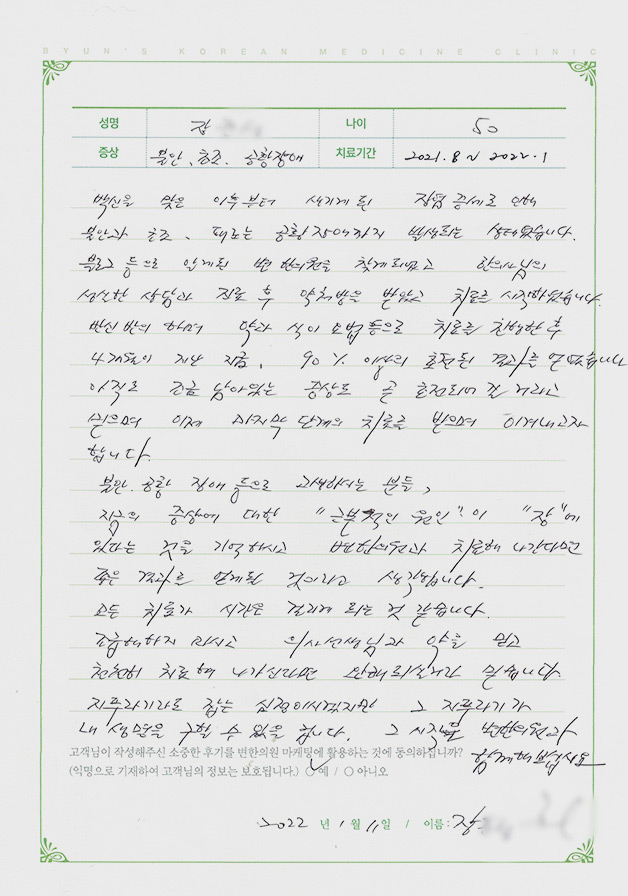 BYUN'S KOREAN MEDICINE CLINIC
성명 장 나이 50
증상 불안, 초조, 공황장애 치료기간 2021. 8 ~ 2022. 1
백신을 맞은 이후부터 생기게 된 장염 증세로 인해
불안과 초조, 때로는 공황장애까지 발생되는 상태였습니다.
블로그 등으로 알게된 변한의원을 찾게되었고 한의사님의
성실한 상담과 진료 후 약처방을 받았고 치료를 시작하였습니다.
반신반의 하며 약과 식이요법 등으로 치료를 진행한 후
4개월이 지난 지금, 90% 이상의 호전된 결과를 얻었습니다
아직도 조금 남아있는 증상도 곧 호전되어 갈 거라고
믿으며 이제 마지막 단계의 치료를 받으며 이겨내고자
합니다.
불안, 공황 장애 등으로 고생하시는 분들,
지금의 증상에 대한 "근본적인 원인"이 "장"에
있다는 것을 기억하시고 변한의원과 치료해 나간다면
좋은 결과를 얻게될 것이라고 생각됩니다.
모든 치료가 시간은 걸리게 되는 것 같습니다.
조급해하지 마시고 의사선생님과 약을 믿고
천천히 치료해 나가신다면 완쾌되실거라 믿습니다.
지푸라기라도 잡는 심정이시겠지만 그 지푸라기가
내 생명을 구할 수 있을 겁니다. 그 시작을 변한의원과
함께해보십시요
고객님이 작성해주신 소중한 후기를 변한의원 마케팅에 활용하는 것에 동의하십니까?
(익명으로 기재하여 고객님의 정보는 보호됩니다.) ○ 예 / ○ 아니오
2022 년 1 월 11 일 / 이름 : 장